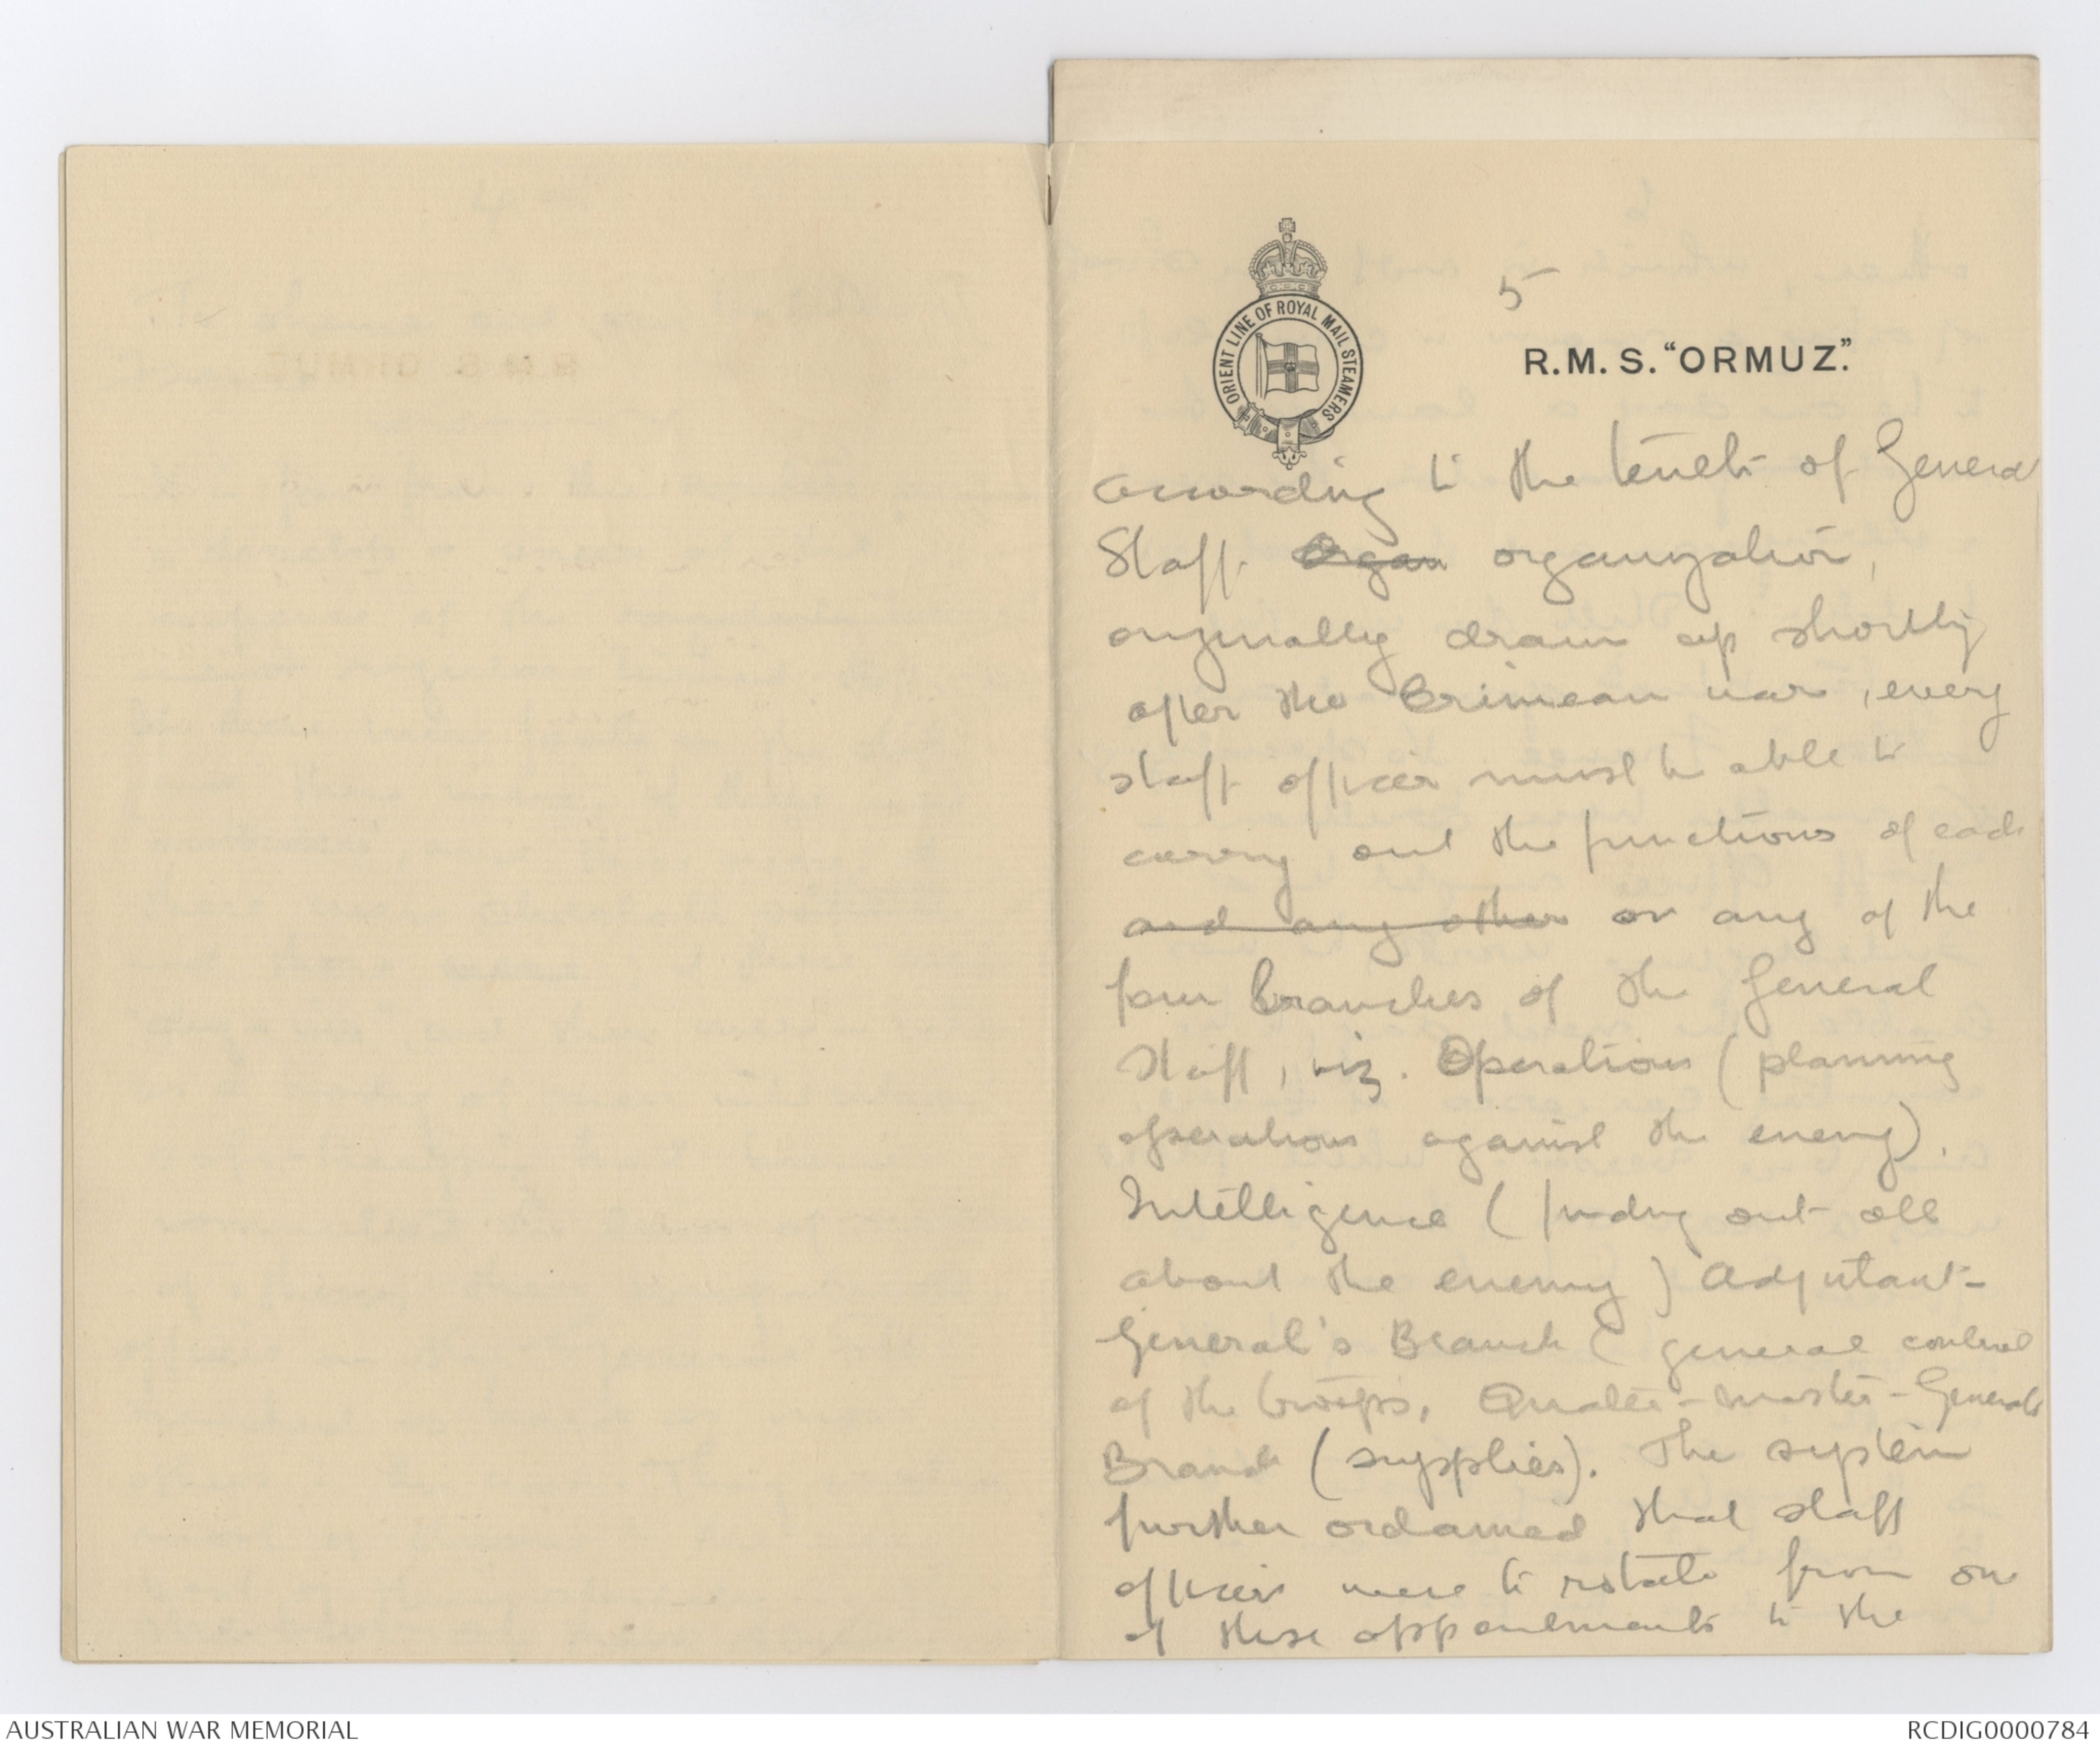 5
ORIENT LINE OF ROYAL MAIL STEAMERS
R.M.S. "ORMUZ."
According to the tenets of General
Staff Organ organization,
originally drawn up shortly
after the Crimean war, every
staff officer must be able to
carry out the functions of each
and any other or any of the
four branches of the General
Staff, viz. Operations (planning
operations against the enemy),
Intelligence (finding out all
about the enemy) Adjutant-
General's Branch (general control
of the troops, Quarter-master-Generals
Branch (supplies). The system
further ordained that staff
officers were to rotate from one
of these appointments to the
AUSTRALIAN WAR MEMORIAL
RCDIG0000784